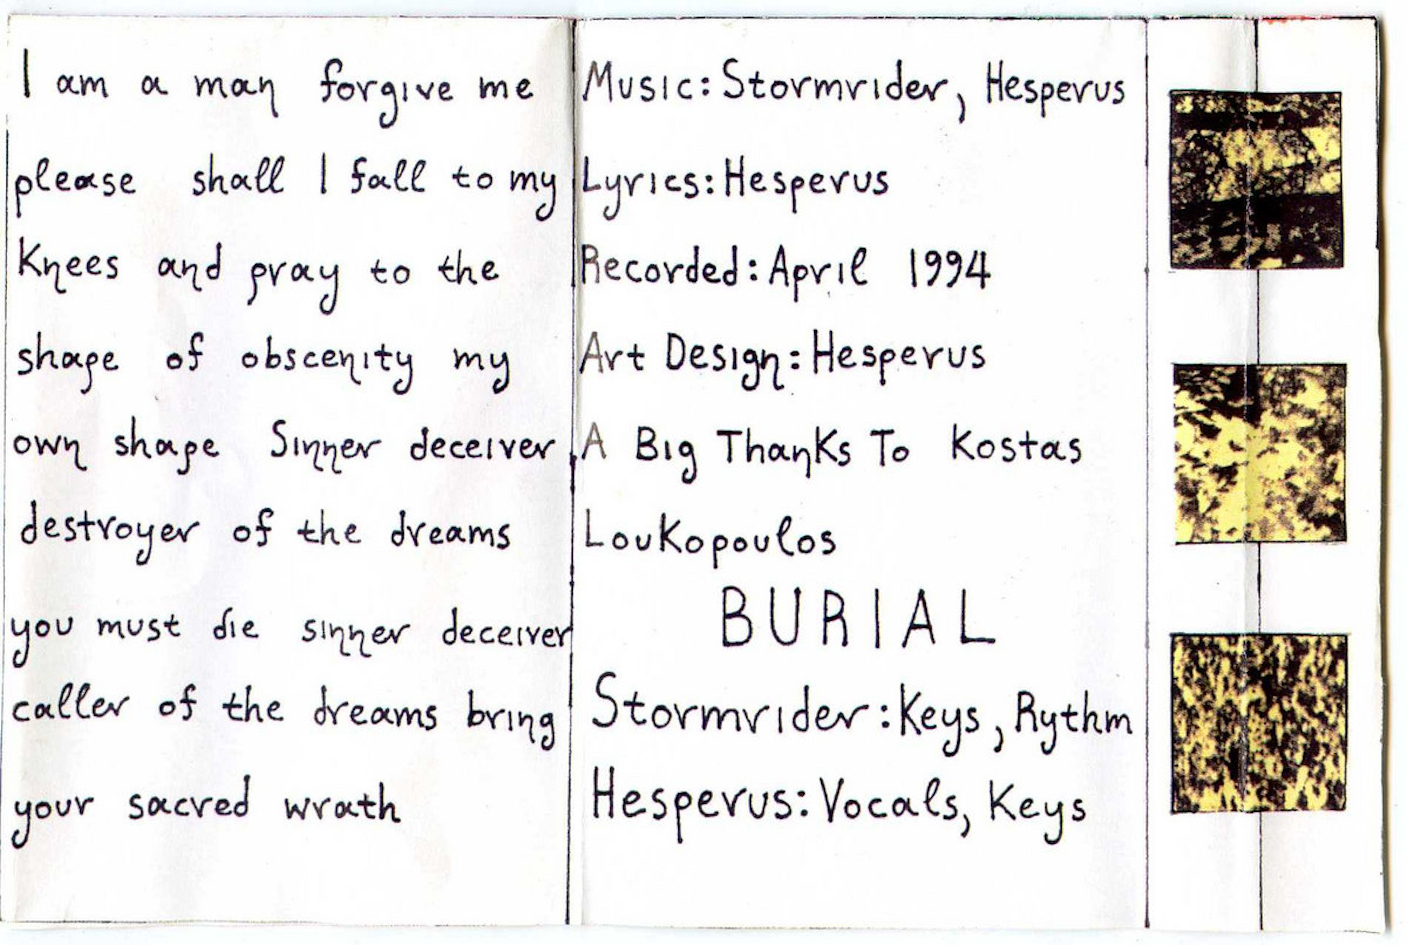 I am a man forgive me
please shall I fall to my
Knees and pray to the
shape of obscenity my
own shape Sinner deceiver
destroyer of the dreams
you must die sinner deceiver
caller of the dreams bring
your sacred wrath
Music: Stormrider, Hesperus
Lyrics: Hesperus
Recorded: April 1994
Art Design: Hesperus
A Big Thanks To Kostas
Loukopoulos
BURIAL
Stormrider: Keys, Rythm
Hesperus: Vocals, Keys